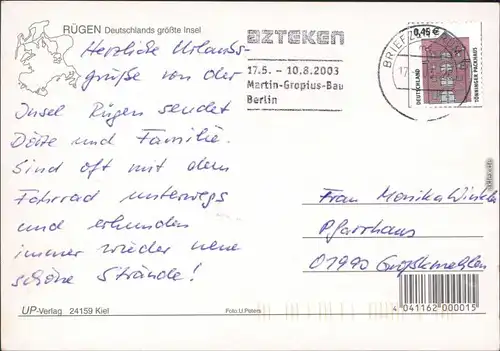 RÜGEN Deutschlands größte Insel
Herzliche Urlaubs-
grüße von der
Insel Rügen sendet
und Familie.
Sind oft mit dem
Fahrrad unterwegs
und erkunden
immer wieder neue
schöne Strände!
UP-Verlag 24159 Kiel
Foto: U. Peters
azteken
17.5. – 10.8.2003
Martin-Gropius-Bau
Berlin
BRIEFZENTRUM
17
0,45 €
DEUTSCHLAND
TÖNNINGER PACKHAUS
Frau Monika
Pfarrhaus
01990 Großkmehlen
4 041162 000015